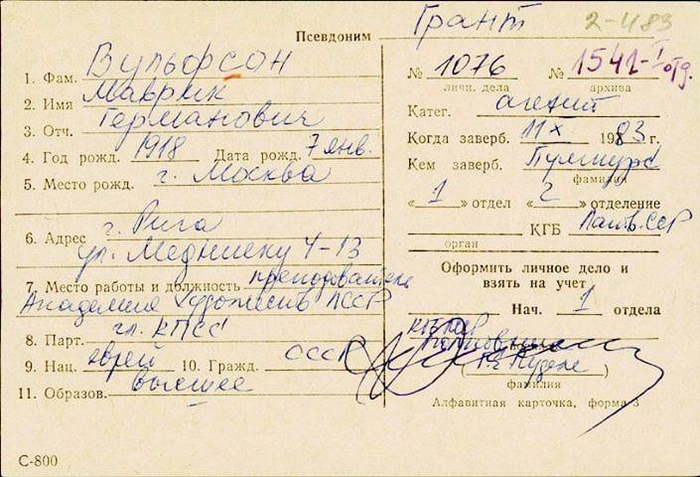 Псевдоним Грант 2-483
1. Фам. Вульфсон
2. Имя Маврик
3. Отч. Германович
4. Год рожд. 1918 Дата рожд. 7 янв.
5. Место рожд. г. Москва
6. Адрес г. Рига
ул. Медниеку 4-13
7. Место работы и должность преподаватель
Академия Художеств ЛССР
8. Парт. чл. КПСС
9. Нац. еврей 10. Гражд. СССР
11. Образов. высшее
С-800
№ 1076 № 1541-I отд.
личн. дела архива
Катег. агент
Когда заверб. 11 X 1983 г.
Кем заверб.
фамилия
«1» отдел «2» отделение
КГБ Латв. ССР
орган
Оформить личное дело и
взять на учет
Нач. 1 отдела
(
)
фамилия
Алфавитная карточка, форма 3